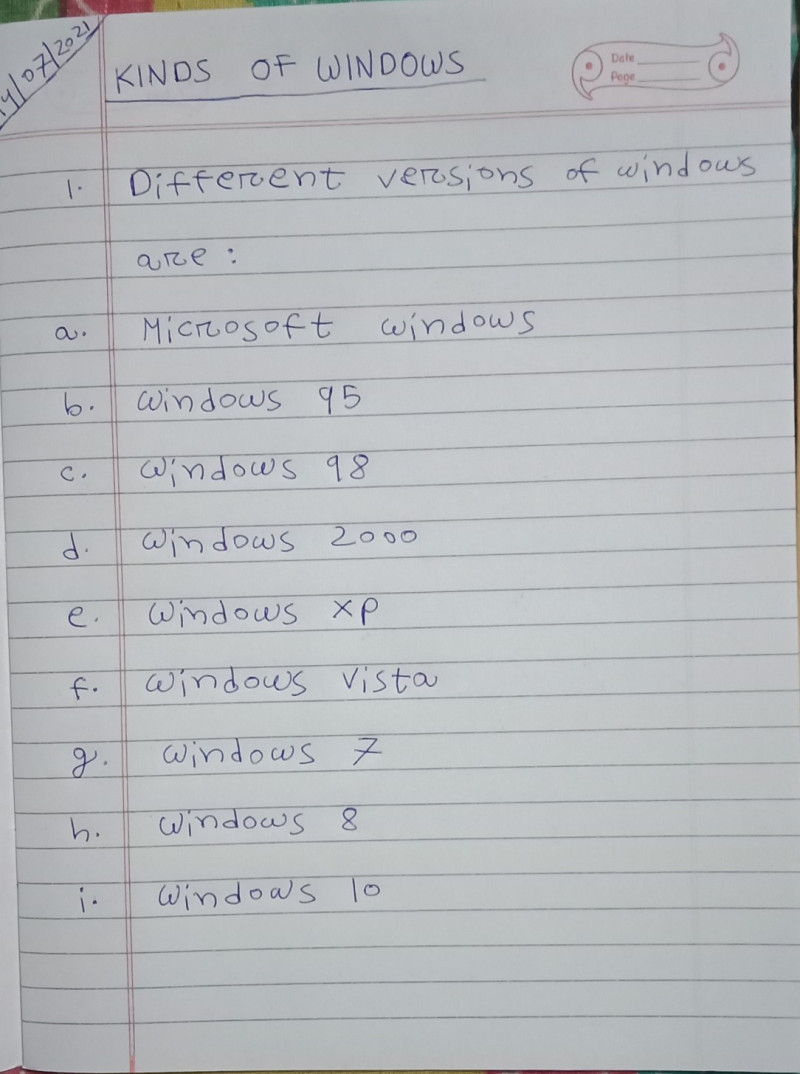 4/07/2021
KINDS OF WINDOWS
Date
Page
1. Different versions of windows
are :
a. Microsoft windows
b. windows 95
c. windows 98
d. windows 2000
e. windows xp
f. windows vista
g. windows 7
h. windows 8
i. windows 10